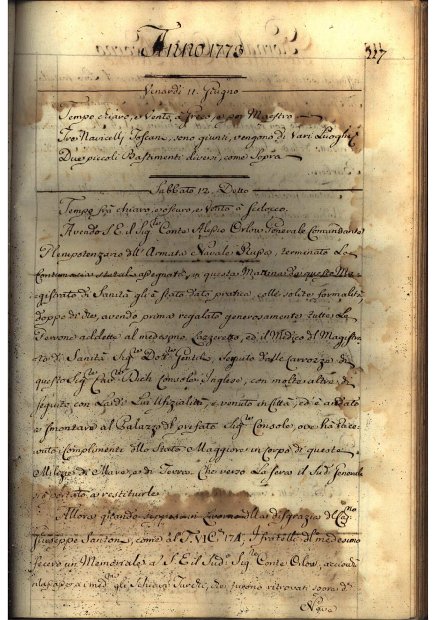 Anno 1773
217
Venardi 11. Giugno
Tempo chiaro, e Vento, a greco, e per Maestro
Tre Navicelli Toscani, sono giunti, vengono di Vari Luoghi
Due piccoli Bastimenti diversi, come Sopra
Sabbato 12. Detto
Tempo chiaro, e oscuro, e Vento a Scilocco.
Avendo S. E. il Sig.r Conte Alessio Orlow Generale Comandante
Plenipotenziario dell' Armata Navale Russa, terminato La
Contumacia statali assegnata, in questa Mattina da questo Ma-
gistrato di Sanità gli è stato dato pratica, colle solite formalità
doppo di che, avendo prima regalato generosamente tutte Le
Persone addette al medesimo Lazzeretto, ed il Medico del Magistra
to di Sanità Sig.re Dot.re Gentili, Seguito dalle Carrozze di
questo Sig.re Cav.re Dick Console Inglese, con molte altre di
seguito, con La di Lui Ufizialità, è venuto in Città, ed è andato
a smontare al Palazzo di prefato Sig.re Console, ove ha rice-
vuto Complimenti dello Stato Maggiore in corpo di queste
Milizie di Mare, e di Terra. Che verso La sera il Sud.o Generale
è portato a restituirle.
Allora quando Seppesi in Livorno della disgrazia del Cap.no
Giuseppe Santoni, come al S. VI C.te 174, I fratelli del medesimo
fecero un Memoriale a S. E. il Sud.o Sig.re Conte Orlow, acciò
gli Schiavi Turchi, che furono ritrovati sopra d.a
Nave